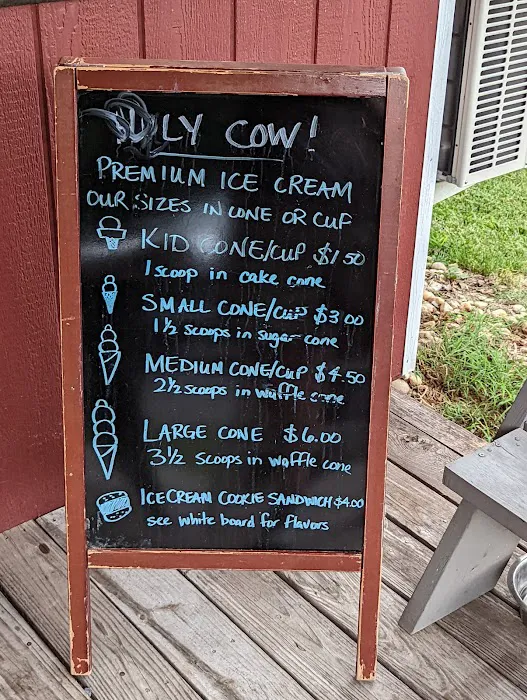 HOLY COW!
PREMIUM ICE CREAM
OUR SIZES IN CONE OR CUP
KID CONE/CUP $1.50
1 scoop in cake cone
SMALL CONE/CUP $3.00
1½ scoops in sugar cone
MEDIUM CONE/CUP $4.50
2½ scoops in waffle cone
LARGE CONE $6.00
3½ scoops in waffle cone
ICE CREAM COOKIE SANDWICH $4.00
see white board for flavors